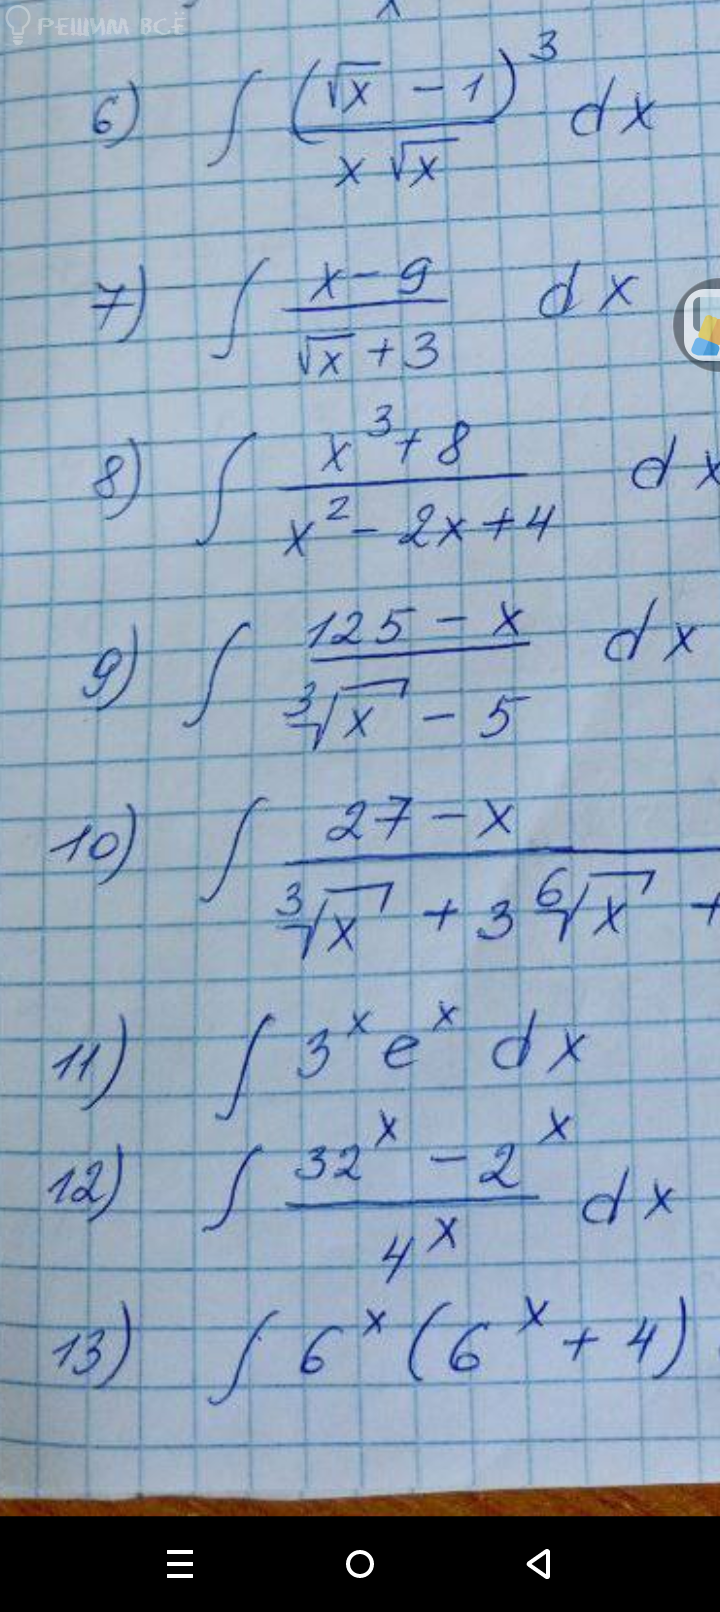 РЕШИМ ВСЁ
6) ∫ (√x - 1)³ / x√x dx
7) ∫ x - 9 / √x + 3 dx
8) ∫ x³ + 8 / x² - 2x + 4 dx
9) ∫ 125 - x / ³√x - 5 dx
10) ∫ 27 - x / ³√x + 3 ⁶√x +
11) ∫ 3ˣ eˣ dx
12) ∫ 32ˣ - 2ˣ / 4ˣ dx
13) ∫ 6ˣ (6ˣ + 4)